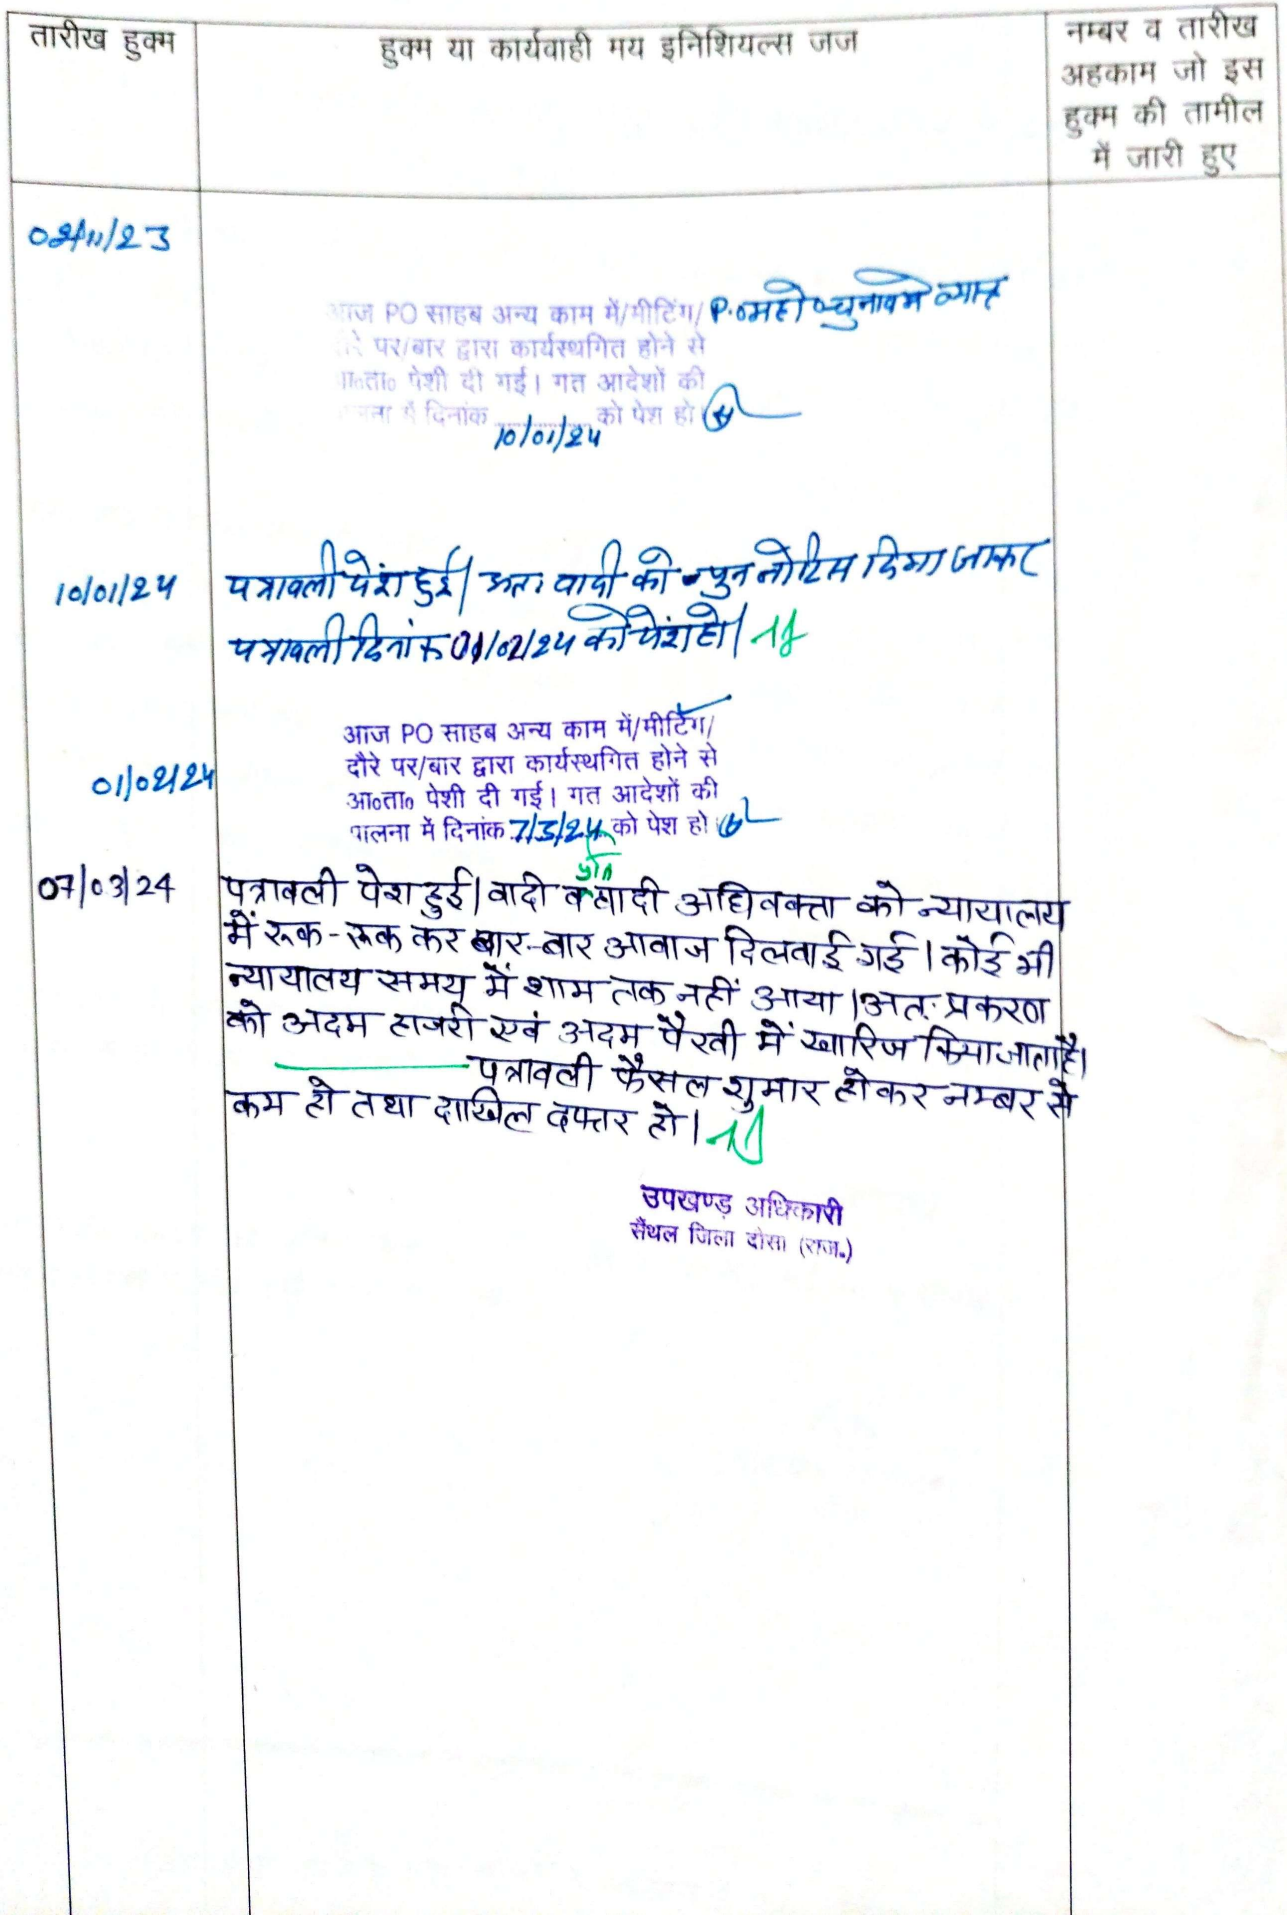 तारीख हुक्म
हुक्म या कार्यवाही मय इनिशियल्स जज
नम्बर व तारीख
अहकाम जो इस
हुक्म की तामील
में जारी हुए
02/11/23
आज PO साहब अन्य काम में/मीटिंग/ P.O महो० चुनाव में व्यस्त
दौरे पर/बार द्वारा कार्यस्थगित होने से
आ०ता० पेशी दी गई। गत आदेशों की
पालना में दिनांक 10/01/24 को पेश हो
10/01/24
पत्रावली पेश हुई। अतः वादी को पुन नोटिस दिया जाकर
पत्रावली दिनांक 01/02/24 को पेश हो।
आज PO साहब अन्य काम में/मीटिंग/
दौरे पर/बार द्वारा कार्यस्थगित होने से
01/02/24
आ०ता० पेशी दी गई। गत आदेशों की
पालना में दिनांक 7/3/24 को पेश हो
07/03/24
पत्रावली पेश हुई। वादी व वादी अधिवक्ता को न्यायालय
में रूक-रूक कर बार-बार आवाज दिलवाई गई। कोई भी
न्यायालय समय में शाम तक नहीं आया। अतः प्रकरण
को अदम हाजरी एवं अदम पैरवी में खारिज किया जाता है।
पत्रावली फैसल शुमार होकर नम्बर से
कम हो तथा दाखिल दफ्तर हो।
उपखण्ड अधिकारी
सैंथल जिला दौसा (राज.)